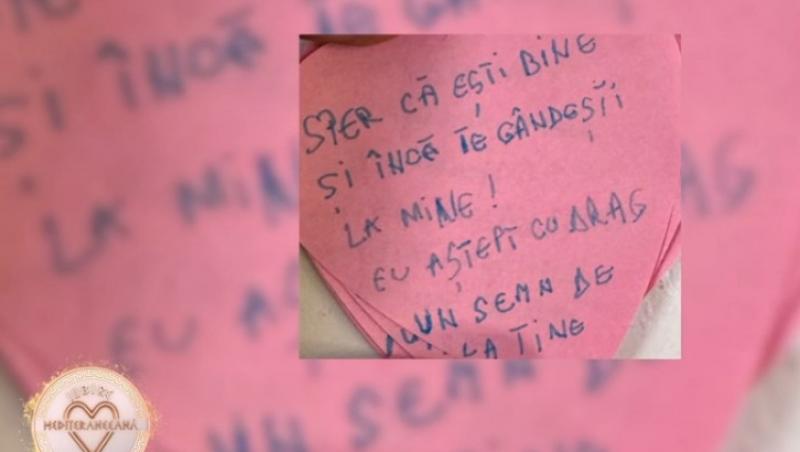 SPER CĂ EȘTI BINE
ȘI ÎNCĂ TE GÂNDEȘTI
LA MINE!
EU AȘTEPT CU DRAG
UN SEMN DE
LA TINE
MEDITERANEEANĂ